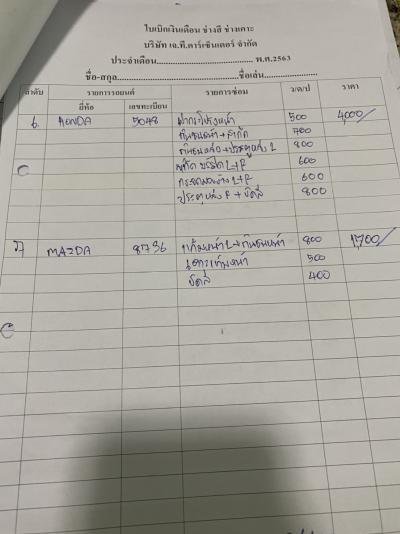 ใบเบิกเงินเดือน ช่างสี ช่างเคาะ
บริษัท เจ.ที.คาร์เซ็นเตอร์ จำกัด
ประจำเดือน.................................................. พ.ศ.2563
ชื่อ-สกุล..................................................ชื่อเล่น......................
ลำดับ รายการรถยนต์ รายการซ่อม ว/ด/ป ราคา
ยี่ห้อ เลขทะเบียน
6. HONDA 5048 ฝากระโปรงหน้า 500 4000/
กันชนหน้า 700
กันชนหลัง+ประตูหลัง L 800
L+R 600
L+R 600
ประตูหลัง R + ขัดสี 800
7) MAZDA 8736 แก้มหน้า L+กันชนหน้า 800 1,700/
เคาะแก้มหน้า 500
ขัดสี 400